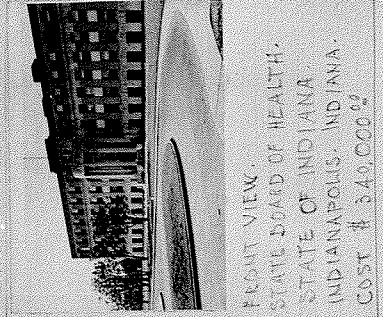 FRONT VIEW.
STATE BOARD OF HEALTH.
STATE OF INDIANA
INDIANAPOLIS. INDIANA.
COST $ 340,000.00